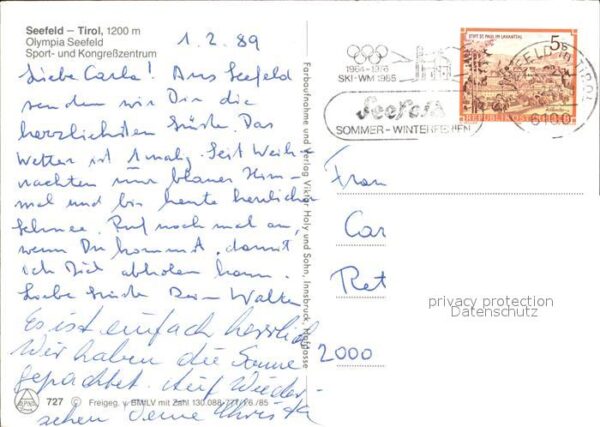 Seefeld – Tirol, 1200 m
Olympia Seefeld
Sport- und Kongreßzentrum
1.2.89
Liebe Carla! Aus Seefeld
senden wir Dir die
herzlichsten Grüsse. Das
Wetter ist 1malig. Seit Weih-
nachten nur blauer Him-
mal und bis heute herrlichen
Schnee. Ruf noch mal an,
wenn Du kommst, damit
ich Dich abholen kann.
Liebe Grüsse Dein Walter
Es ist einfach herrlich
Wir haben die Sonne
gepachtet. Auf Wieder-
sehen Deine Christa
727 © Freigeg. v. BMfLV mit Zahl 13.088-777/1.6/85
Farbaufnahme und Verlag Viktor Holy und Sohn, Innsbruck,
1964-1976
SKI-WM 1985
Seefeld
SOMMER - WINTERFERIEN
STIFT ST. PAUL IM LAVANTTAL
5S
REPUBLIK ÖSTERREICH
SEEFELD TIROL
6100
Frau
Car
Ret
2000
privacy protection
Datenschutz